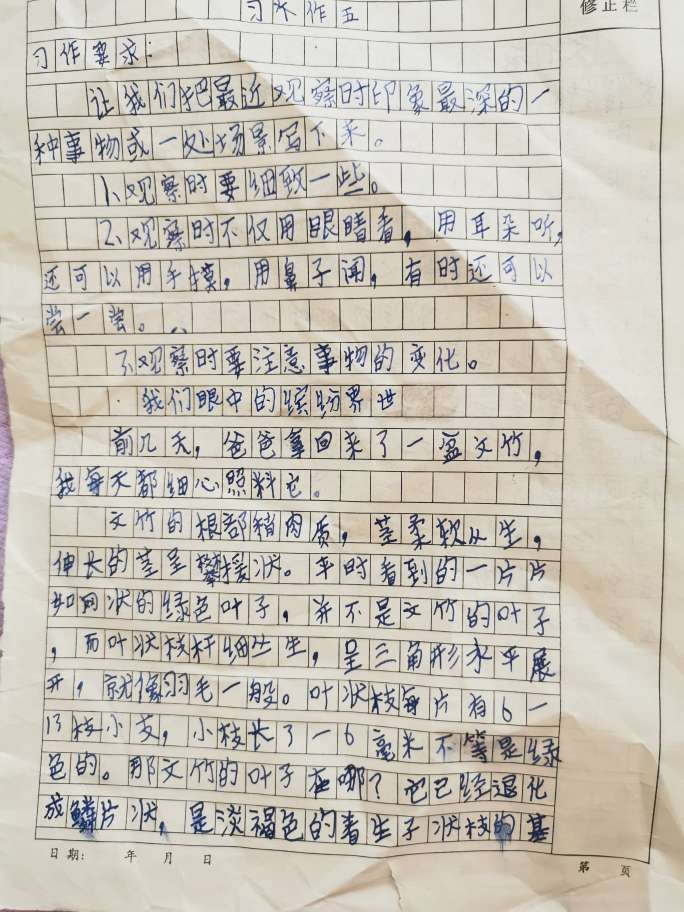 习作五
修正栏
习作要求：
让我们把最近观察时印象最深的一
种事物或一处场景写下来。
1、观察时要细致一些。
2、观察时不仅用眼睛看，用耳朵听，
还可以用手摸，用鼻子闻，有时还可以
尝一尝。
3、观察时要注意事物的变化。
我们眼中的缤纷界世
前几天，爸爸拿回来了一盆文竹，
我每天都细心照料它。
文竹的根部稍肉质，茎柔软丛生，
伸长的茎呈攀援状。平时看到的一片片
如网状的绿色叶子，并不是文竹的叶子
，而叶状枝杆细丛生，呈三角形水平展
开，就像羽毛一般。叶状枝每片有6一
13枝小支，小枝长了一6毫米不等是绿
色的。那文竹的叶子在哪？它已经退化
成鳞片状，是淡褐色的着生子状枝的基
日期： 年 月 日
第 页